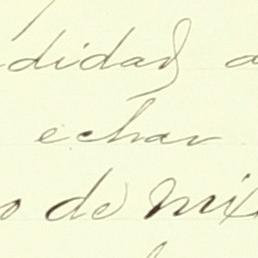 didad a
echar
o de mi